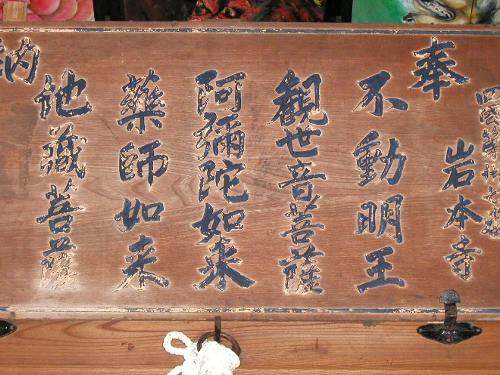 奉
岩本寺
不動明王
観世音菩薩
阿彌陀如来
薬師如来
地蔵菩薩
納